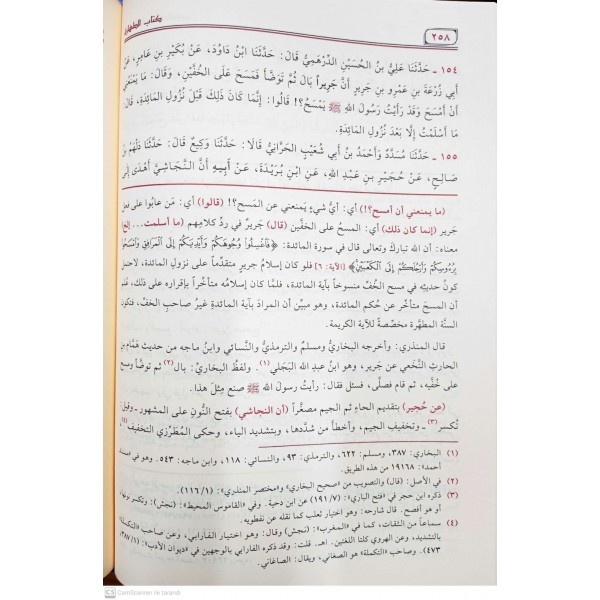 ٢٥٨
كتاب الطهارة
١٥٤ ـ حَدَّثَنَا عَلِيُّ بنُ الحُسَيْنِ الدِّرْهَمِيُّ قَالَ: حَدَّثَنَا ابْنُ دَاوُدَ، عَنْ بُكَيْرِ بنِ عَامِرٍ، عَنْ
أَبِي زُرْعَةَ بنِ عَمْرِو بنِ جَرِيرٍ أَنَّ جَرِيراً بَالَ ثُمَّ تَوَضَّأَ فَمَسَحَ عَلَى الخُفَّيْنِ، وَقَالَ: مَا يَمْنَعُنِي
أَنْ أَمْسَحَ وَقَدْ رَأَيْتُ رَسُولَ اللهِ ﷺ يَمْسَحُ؟! قَالُوا: إِنَّمَا كَانَ ذَلِكَ قَبْلَ نُزُولِ المَائِدَةِ، قَالَ:
مَا أَسْلَمْتُ إِلَّا بَعْدَ نُزُولِ المَائِدَةِ.
١٥٥ ـ حَدَّثَنَا مُسَدَّدٌ وَأَحْمَدُ بنُ أَبِي شُعَيْبٍ الحَرَّانِيُّ قَالَا: حَدَّثَنَا وَكِيعٌ قَالَ: حَدَّثَنَا دَلْهَمُ بنُ
صَالِحٍ، عَنْ حُجَيْرِ بنِ عَبْدِ اللهِ، عَنِ ابْنِ بُرَيْدَةَ، عَنْ أَبِيهِ أَنَّ النَّجَاشِيَّ أَهْدَى إِلَى
(ما يمنعني أن أمسح؟!) أي: أيُّ شيءٍ يَمنعني عن المَسح؟! (قالوا) أي: مَن عابوا على فعل
جَرير (إنما كان ذلك) أي: المسح على الخفَّين (قال) جَريرٌ في ردِّ كلامِهم (ما أسلمت... إلخ)
معناه: أن الله تباركَ وتعالى قال في سورة المائدة: ﴿فَاغْسِلُوا وُجُوهَكُمْ وَأَيْدِيَكُمْ إِلَى الْمَرَافِقِ وَامْسَحُوا
بِرُءُوسِكُمْ وَأَرْجُلَكُمْ إِلَى الْكَعْبَيْنِ﴾ [الآية: ٦] فلو كان إسلامُ جرير متقدِّماً على نزول المائدة، لاحتمل
كونُ حديثِه في مسح الخُفِّ منسوخاً بآية المائدة، فلمَّا كان إسلامُه متأخِّراً بإقراره على ذلك، عُلِم
أن المسحَ متأخِّر عن حُكمِ المائدة، وهو مبيِّن أن المرادَ بآية المائدة غيرُ صاحبِ الخفِّ، فتكون
السنَّة المطهَّرة مخصِّصةً للآية الكريمة.
قال المنذري: وأخرجه البخاري ومسلم والترمذيُّ والنَّسائي وابنُ ماجه من حديث همَّام بن
الحارث النَّخعي عن جَرير، وهو ابنُ عبد الله البَجَلي(١). ولفظُ البخاريِّ: بال(٢) ثم توضَّأ ومسح
على خُفَّيه، ثم قام فصلَّى، فسئل فقال: رأيتُ رسولَ الله ﷺ صنع مِثلَ هذا.
(عن حُجَير) بتقديم الحاءِ ثم الجيم مصغَّراً (أن النجاشي) بفتح النُّون على المشهور ـ وقيل:
تُكسر(٣) ـ وتخفيفِ الجيم، وأخطأ من شدَّدها، وبتشديد الياء، وحكى المطرِّزي التخفيفَ(٤)
(١) البخاري: ٣٨٧، ومسلم: ٦٢٢، والترمذي: ٩٣، والنسائي: ١١٨، وابن ماجه: ٥٤٣. وهو في «مسند
أحمد»: ١٩١٦٨ من هذه الطريق.
(٢) في الأصل: (قال) والتصويب من «صحيح البخاري» و«مختصر المنذري»: (١/ ١١٦).
(٣) ذكره ابن حجر في «فتح الباري»: (٧/ ١٩١) عن ابن دحية. وفي «القاموس المحيط»: (نجش): وتكسر نونها
أو هو أفصح. قال شارحه: وهو اختيار ثعلب كما نقله عن نفطويه.
(٤) سماعاً من الثقات، كما في «المغرب»: (نجش) وقال: وهو اختيار الفارابي، وعن صاحب «التكملة»
بالتشديد، وعن الهروي كلتا اللغتين. اهـ. قلت: وقد ذكره الفارابي بالوجهين في «ديوان الأدب»: (١/ ٣٨٧،
٤٧٣). وصاحب «التكملة» هو الصغاني، ويقال: الصاغاني.
CS CamScanner ile tarandı